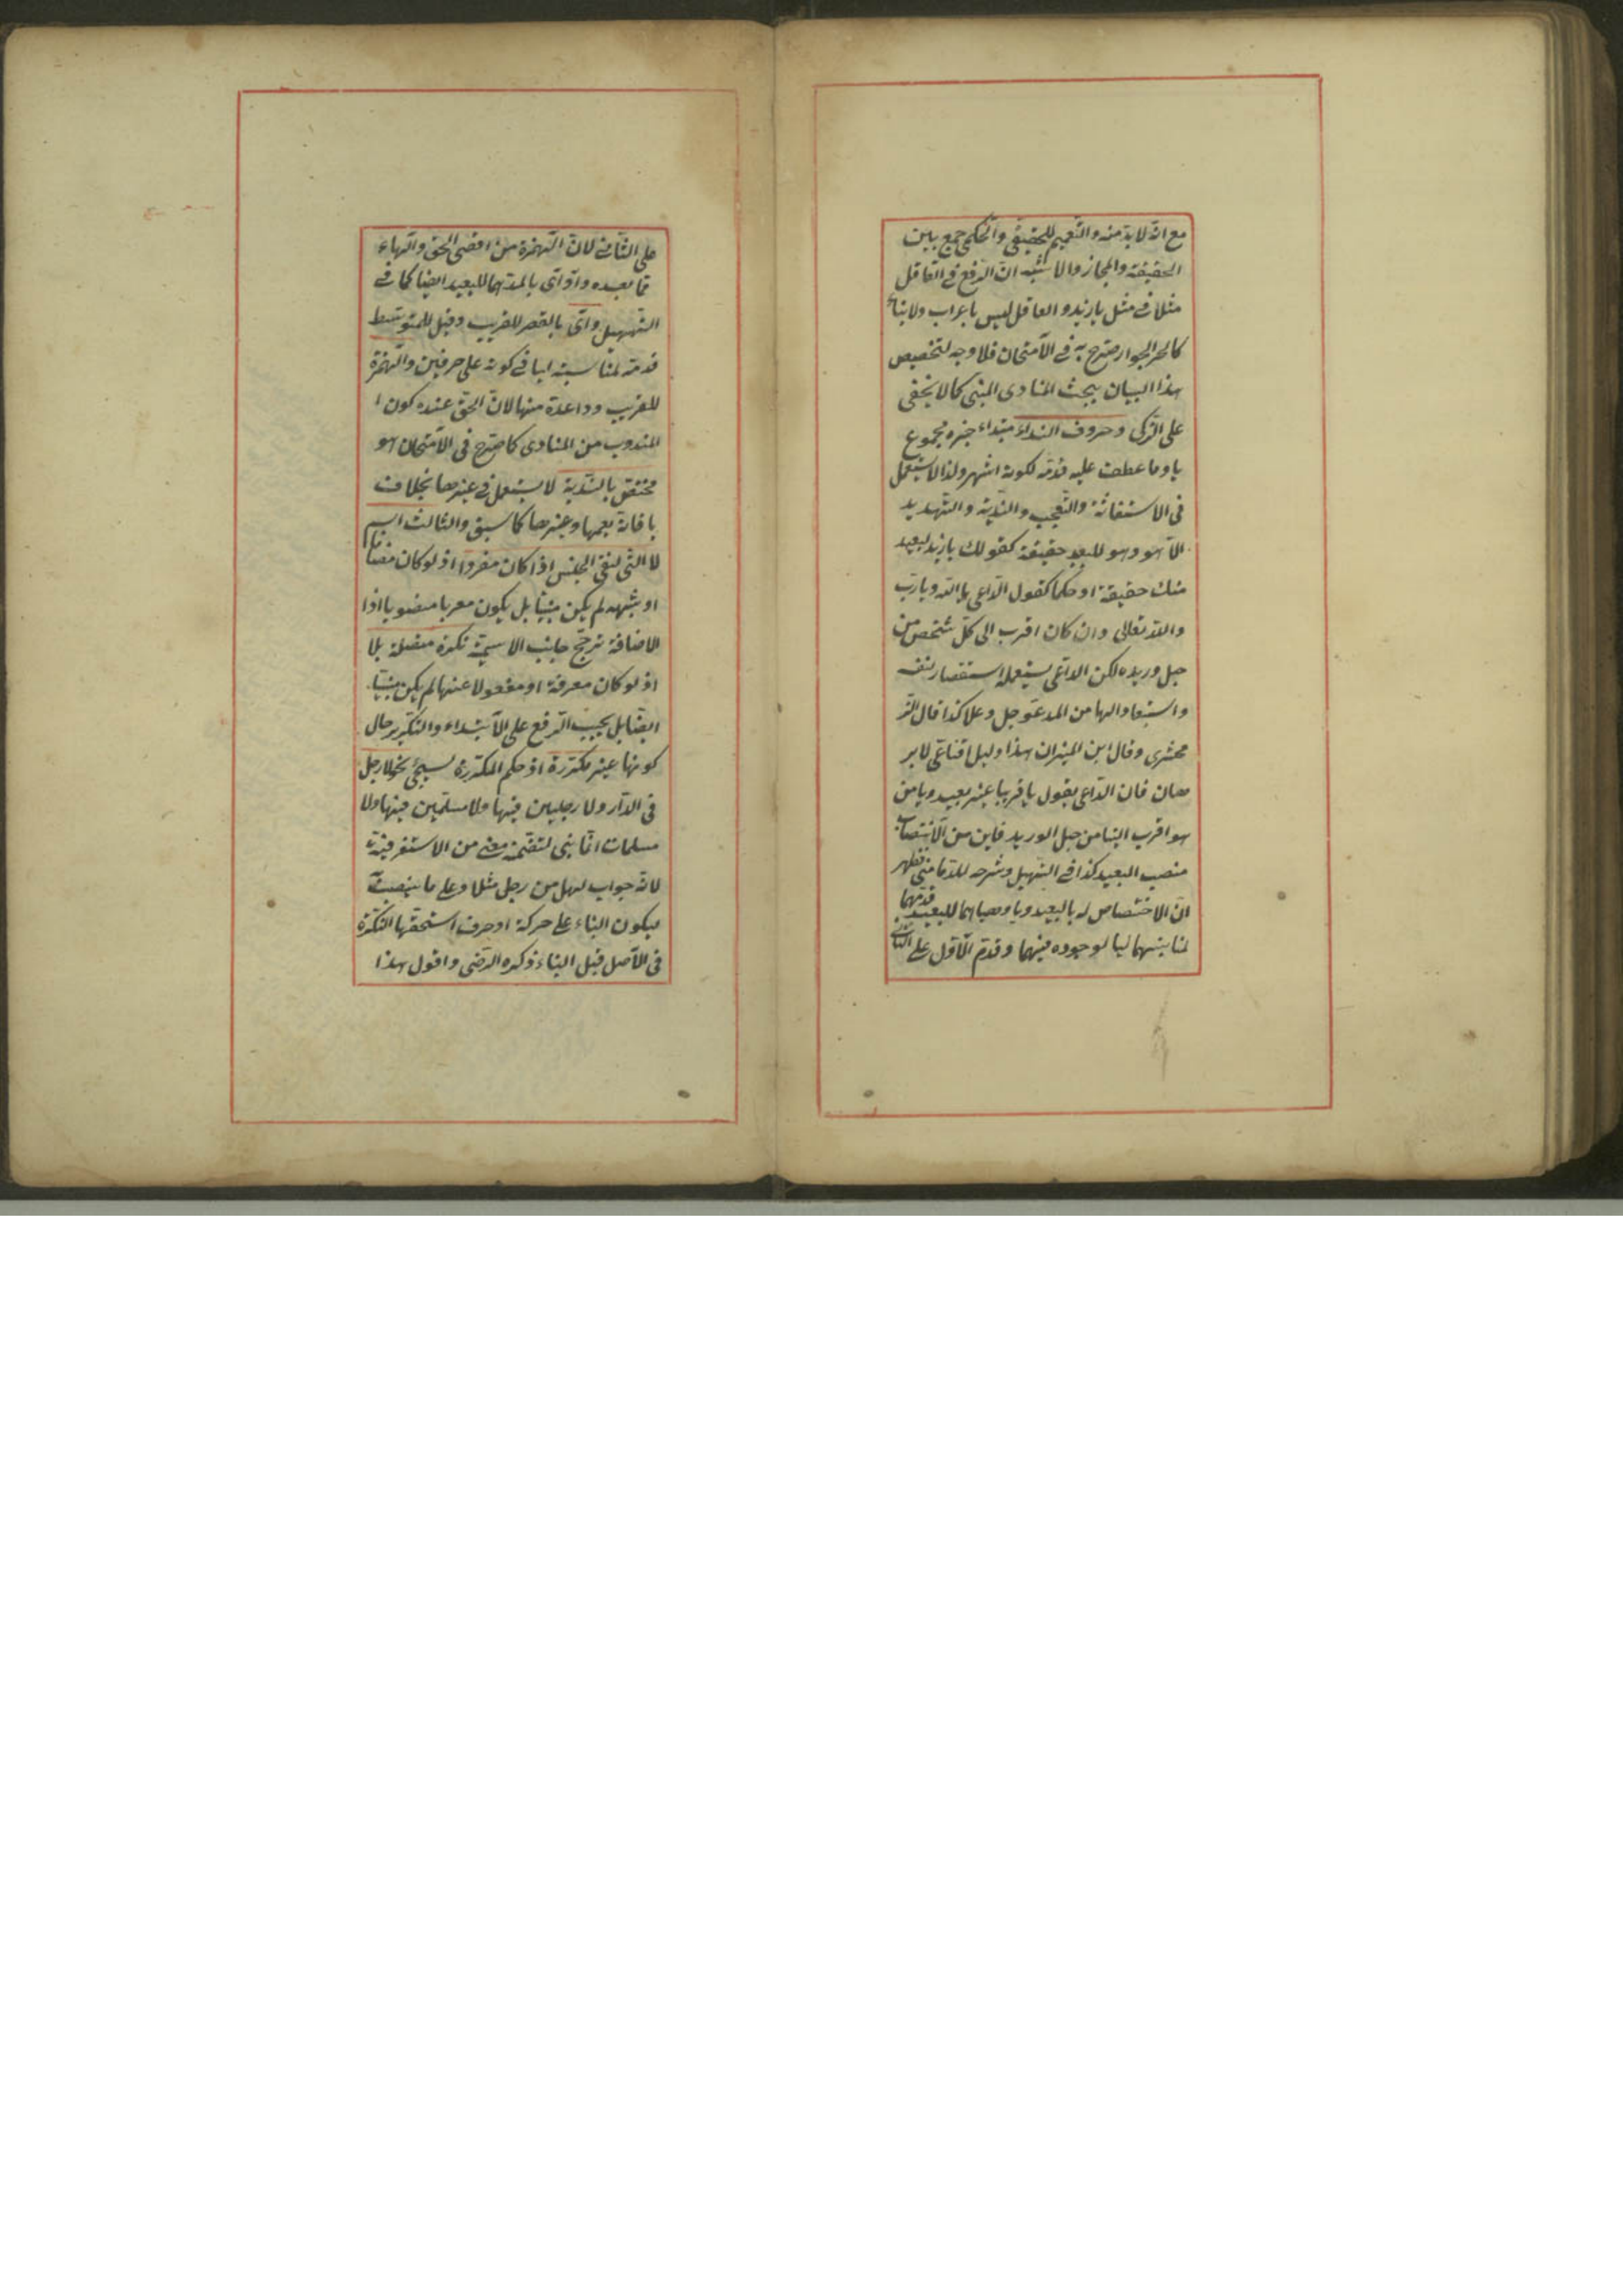 مع انه لابد منه والتعميم للحقيقى والحكمى جمع بين
الحقيقة والمجاز والاشبه ان الرفع فى العاقل
مثلا فى مثل يا زيد والعاقل ليس باعراب ولا بناء
كالجر الجوار صرح به فى الامتحان فلا وجه لتخصيص
هذا البيان ببحث المنادى المبنى كما لا يخفى
على الزكى وحروف النداء مبتداء خبره مجموع
يا وما عطف عليه قدمه لكونه اشهر ولذا لا يستعمل
فى الاستغاثة والتعجب والندبة والتهديد
الا هو وهو للبعيد حقيقة كقولك يا زيد لبعيد
منك حقيقة او حكما كقول الداعى يا الله ويا رب
والله تعالى وان كان اقرب الى كل شخص من
حبل وريده لكن الداعى يستعمله استقصار نفسه
واستبعادا لها من المدعو جل وعلا كذا قال الز
محشرى وقال ابن المنير ان هذا دليل اقناعى لا بر
هان فان الداعى يقول يا قريبا غير بعيد ويا من
هو اقرب الينا من حبل الوريد فاين من الانتصاب
منصب البعيد كذا فى التسهيل وشرحه للدمامينى فظهر
ان الاختصاص له بالبعيد ويا وهيا هما للبعيد قدمهما
لمناسبتهما ليا لوجوده فيهما وقدم الاول على الثانى
على الثانى لان الهمزة من اقصى الحلق والهاء
مما بعده وآو آى بالمد هما للبعيد ايضا كما فى
التسهيل واى بالقصر للقريب وقيل للمتوسط
قدمه لمناسبته ايا فى كونه على حرفين والهمزة
للقريب ووا عده منها لان الحق عنده كون ا
المندوب من المنادى كما صرح فى الامتحان هو
مختص بالندبة لا يستعمل فى غيرها بخلاف
يا فانه يعمها وغيرها كما سبق والثالث اسم
لا التى لنفى الجنس اذا كان مفردا اذ لو كان مضافا
او شبهه لم يكن مبنيا بل يكون معربا منصوبا اذا
الاضافة ترجح جانب الاسمية نكرة متصلة بلا
اذ لو كان معرفة او مفصولا عنها لم يكن مبنيا
ايضا بل يجب الرفع على الابتداء والتكرير حال
كونها غير مكررة اذ حكم المكررة سيجئ نحو لا رجل
فى الدار ولا رجلين فيها ولا مسلمين فيها ولا
مسلمات انما بنى لتضمنه معنى من الاستغراقية
لانه جواب لهل من رجل مثلا وعلى ما ينصب
ليكون البناء على حركة او حرف استحقها النكرة
فى الاصل قبل البناء ذكره الرضى واقول هذا